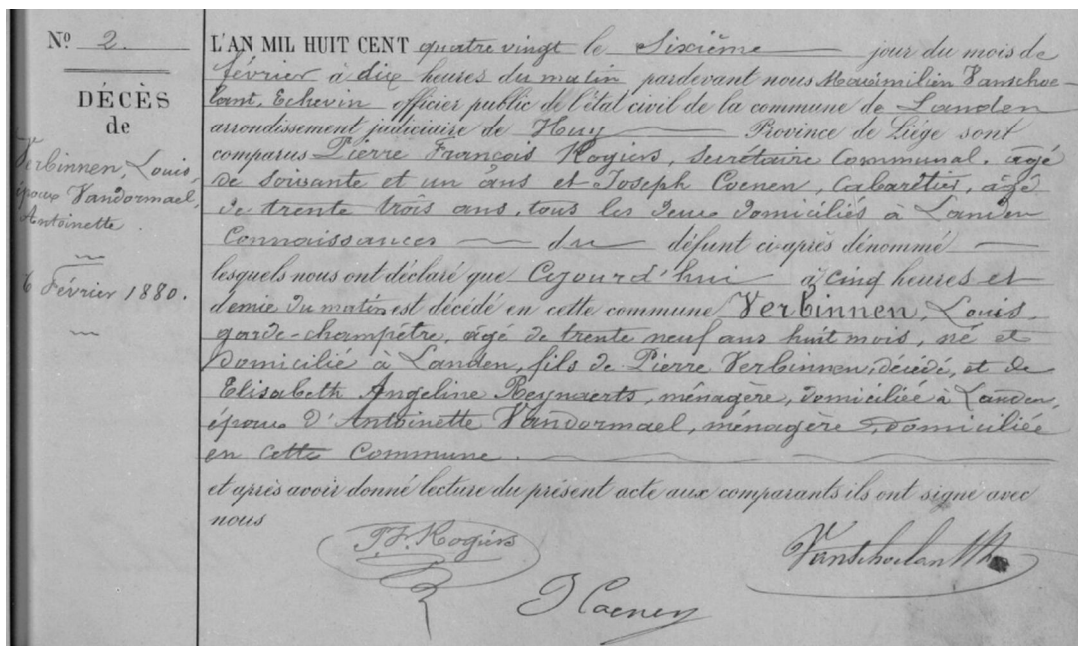 Nº 2.
DÉCÈS
de
Verbinnen, Louis,
époux Vandormael,
Antoinette
6 Février 1880.
L'AN MIL HUIT CENT quatre vingt le Sixième jour du mois de
février à dix heures du matin pardevant nous Maximilien Vanschoe-
lant, Echevin officier public de l'état civil de la commune de Landen
arrondissement judiciaire de Huy Province de Liége sont
comparus Pierre François Rogiers, Secrétaire Communal, âgé
de soixante et un ans et Joseph Coenen, Cabaretier, âgé
de trente trois ans, tous les deux domiciliés à Landen
Connaissances du défunt ci-après dénommé
lesquels nous ont déclaré que Cejourd'hui à cinq heures et
demie du matin est décédé en cette commune Verbinnen, Louis
garde-champêtre, âgé de trente neuf ans huit mois, né et
domicilié à Landen, fils de Pierre Verbinnen, décédé, et de
Elisabeth Angeline Reynaerts, ménagère, domiciliée à Landen,
époux d'Antoinette Vandormael, ménagère domiciliée
en cette Commune.
et après avoir donné lecture du présent acte aux comparants ils ont signé avec
nous
P.F. Rogiers
J Coenen